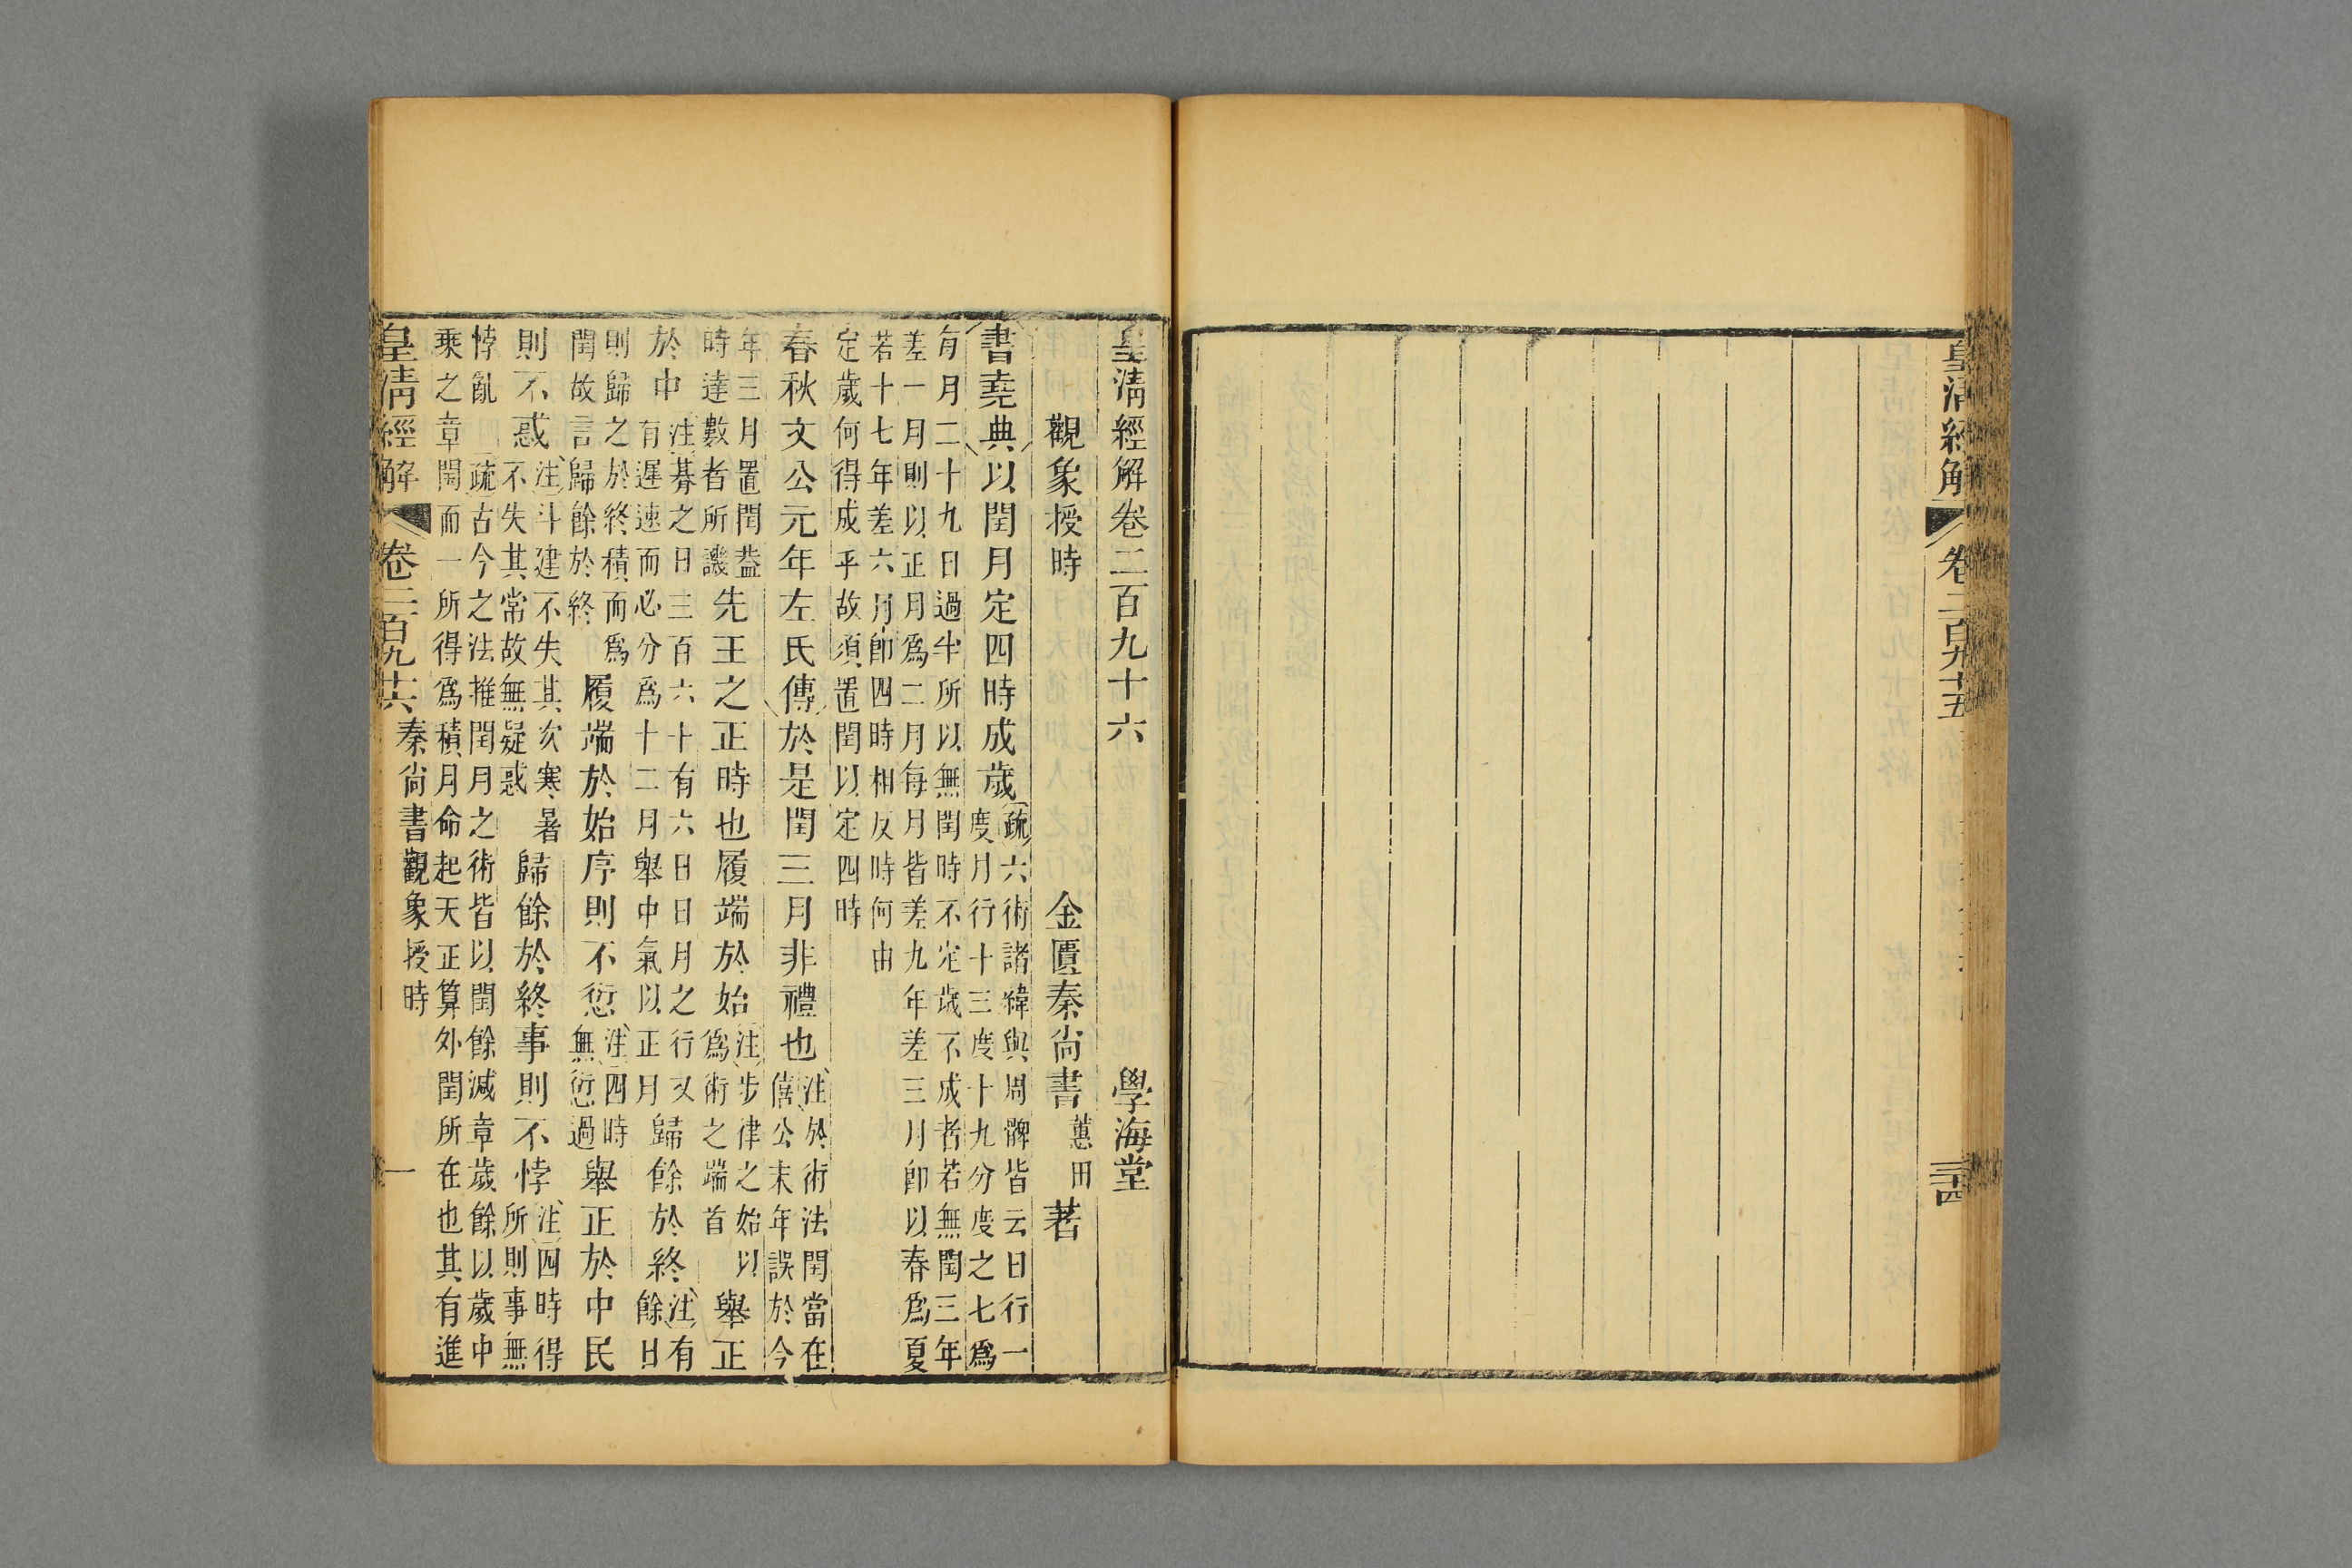 皇清經解 卷二百九十五 三十四
皇清經解卷二百九十六 學海堂
觀象授時 金匱秦尚書蕙田著
書堯典以閏月定四時成歲疏六術諸緯與周髀皆云日行一
度月行十三度十九分度之七爲
有月二十九日過半所以無閏時不定歲不成者若無閏三年
差一月則以正月爲二月每月皆差九年差三月卽以春爲夏
若十七年差六月卽四時相反時何由
定歲何得成乎故須置閏以定四時
春秋文公元年左氏傳於是閏三月非禮也注於術法閏當在
僖公末年誤於今
年三月置閏葢
時達數者所譏
先王之正時也履端於始注步律之始以
爲術之端首
舉正
於中注朞之日三百六十有六日日月之行又
有遲速而必分爲十二月舉中氣以正月
歸餘於終注有
餘日
則歸之於終積而爲
閏故言歸餘於終
履端於始序則不愆注四時
無愆過
舉正於中民
則不惑注斗建不失其次寒暑
不失其常故無疑惑
歸餘於終事則不悖注四時得
所則事無
悖亂疏古今之法推閏月之術皆以閏餘減章歲餘以歲中
乘之章閏而一所得爲積月命起天正算外閏所在也其有進
皇清經解 卷二百九十六 秦尚書觀象授時 一